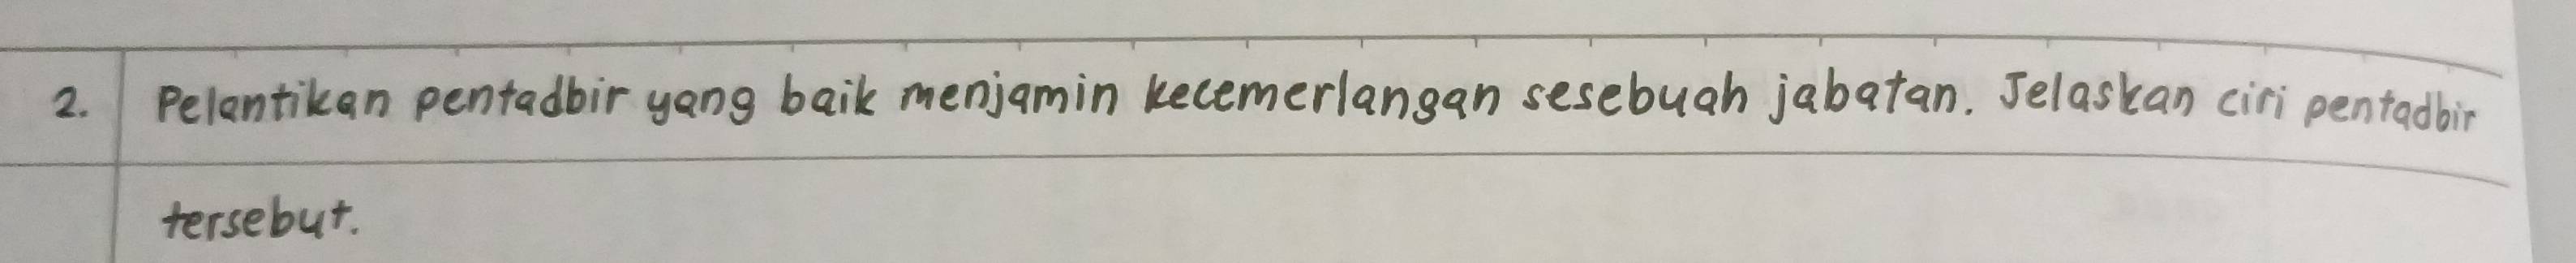 2. Pelantikan pentadbir yang baik menjamin kecemerlangan sesebuah jabatan. Jelaskan ciri pentadbir
tersebut.